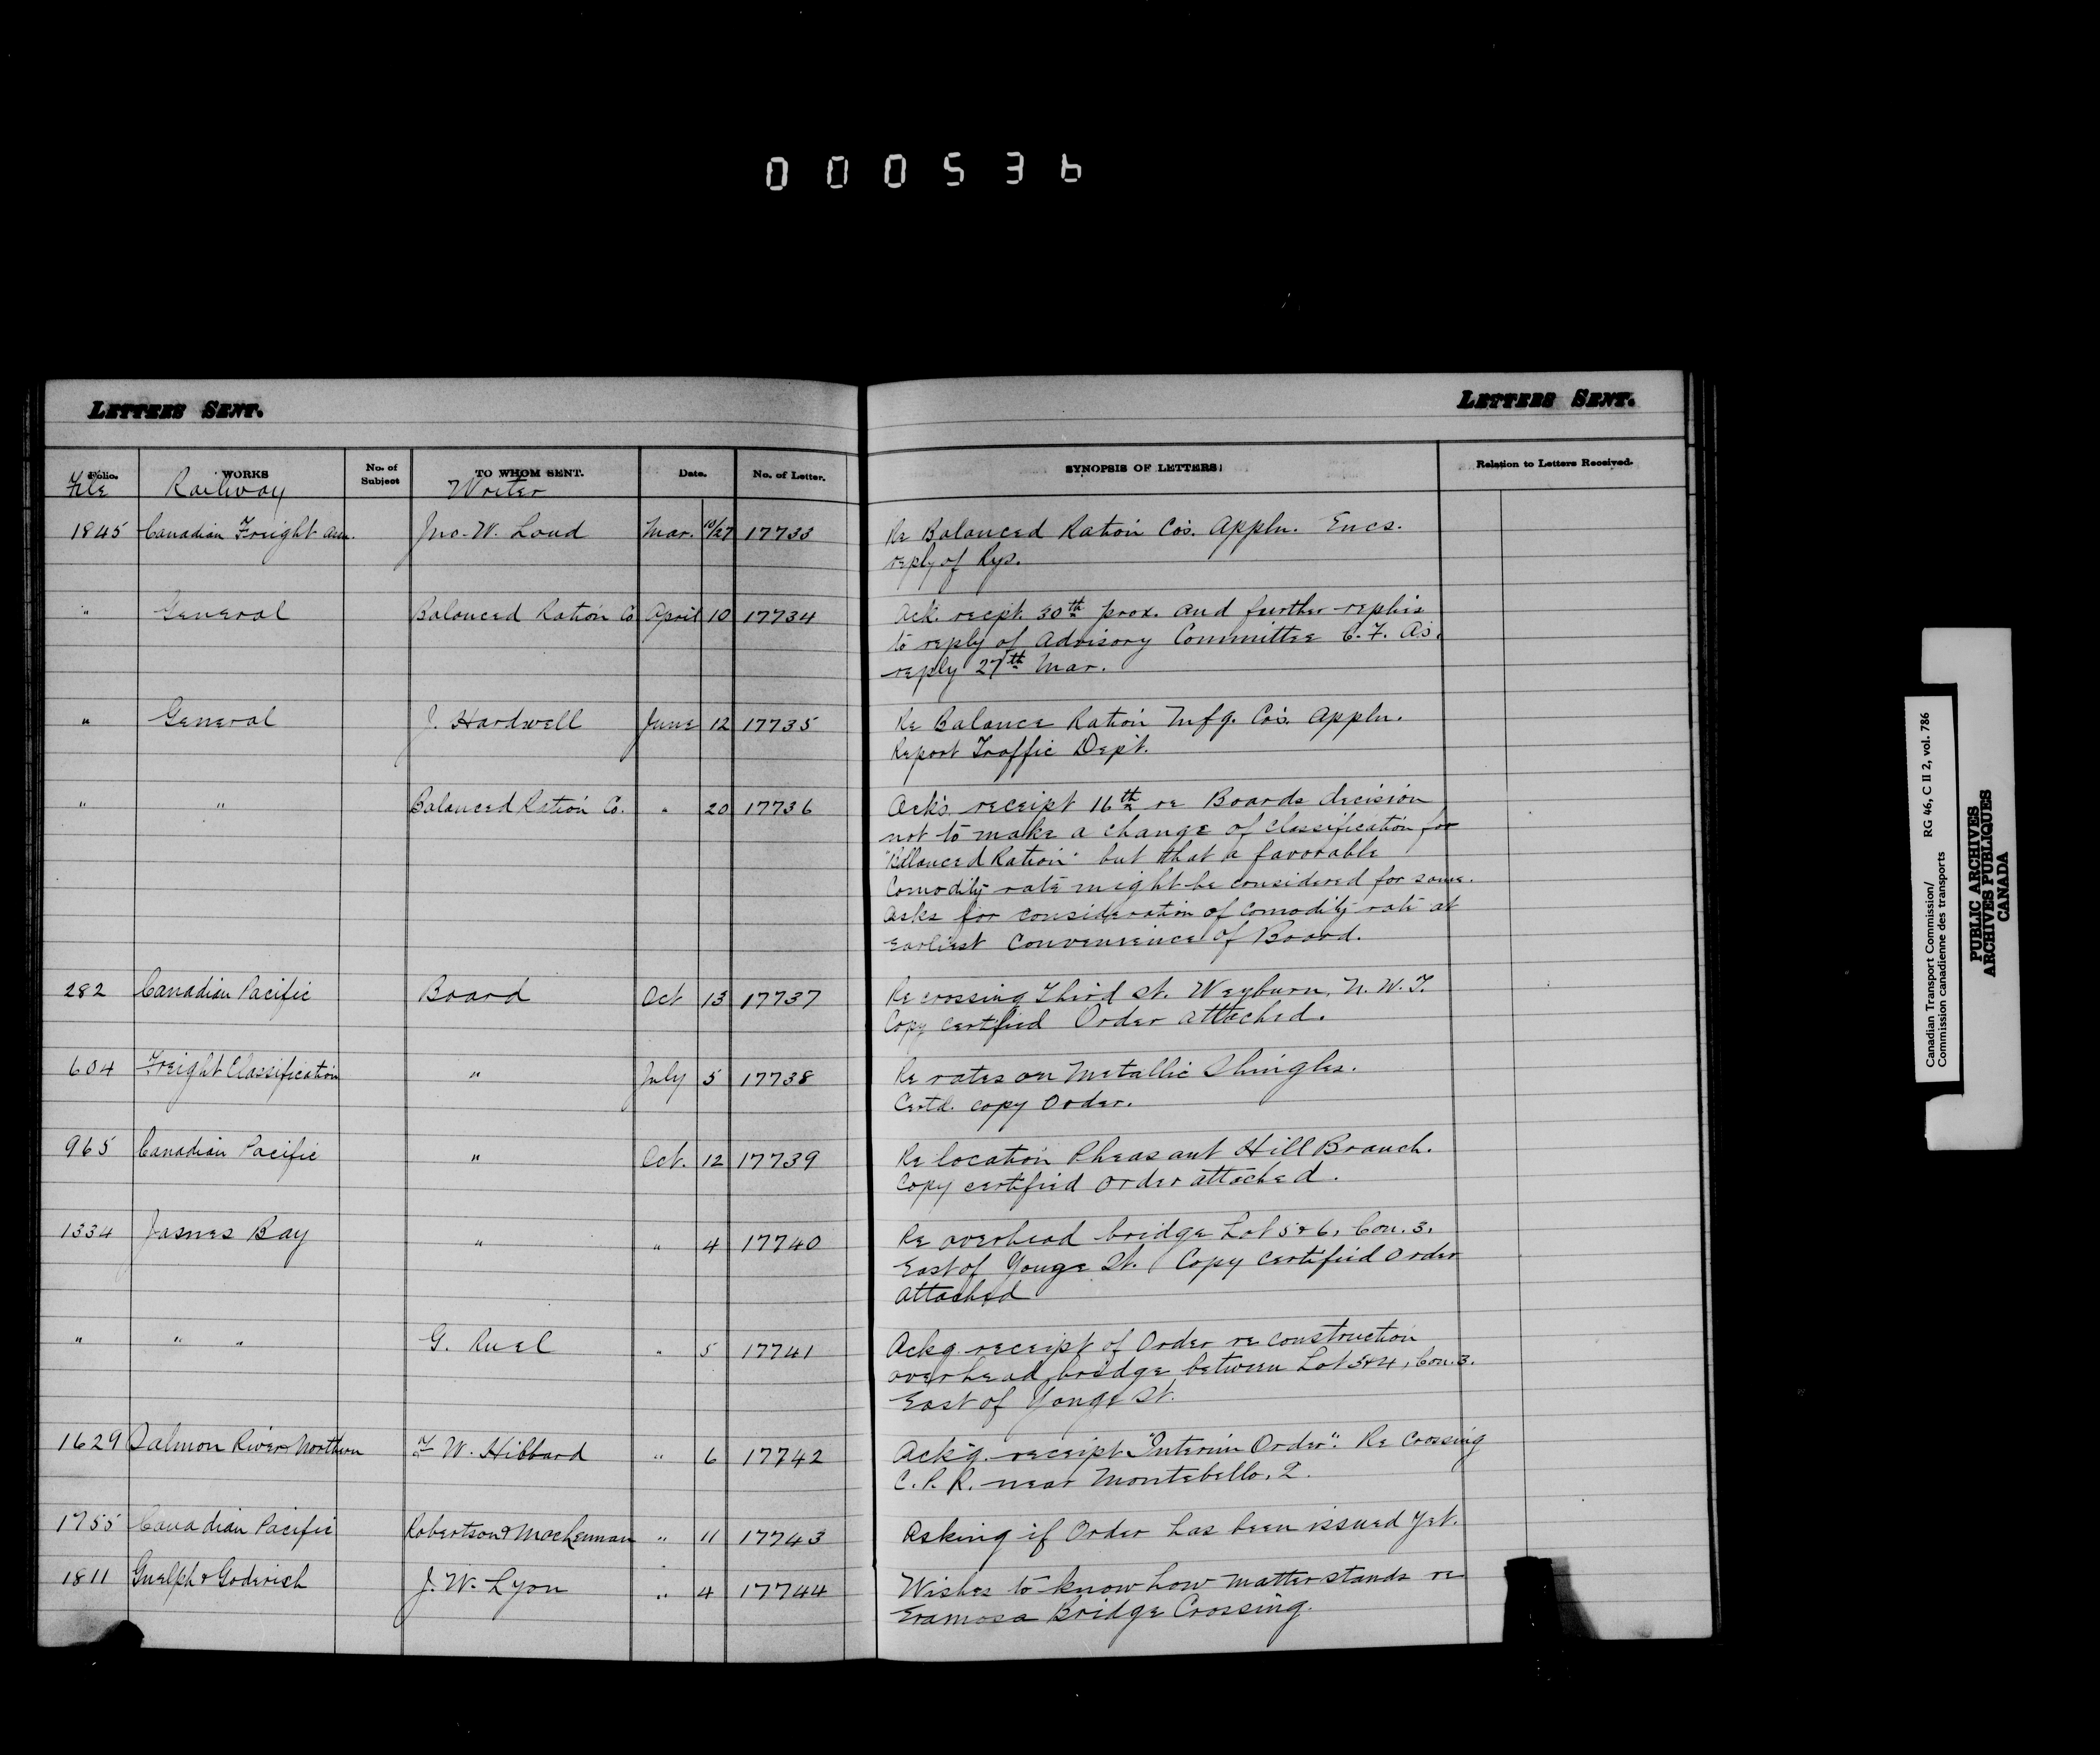 000536
LETTERS SENT.
LETTERS SENT.
Folio. WORKS No. of Subject TO WHOM SENT. Date. No. of Letter. SYNOPSIS OF LETTERS. Relation to Letters Received.
File Railway Writer
1845 Canadian Freight Assn. Jno. W. Loud Mar. 10/27 17733 Re Balanced Ration Co's. Appln. Encs.
reply of Rys.
" General Balanced Ration Co April 10 17734 Ack. recpt. 30th prox. and further replies
to reply of Advisory Committee C. F. A's.
reply 27th Mar.
" General J. Hardwell June 12 17735 Re Balance Ration Mfg. Co's. Appln.
Report Traffic Dep't.
" " Balanced Ration Co. " 20 17736 Ack's. receipt 16th re Boards decision
not to make a change of classification for
"Ballanced Ration" but that a favorable
Comodity rate might be considered for same.
Asks for consideration of comodity rate at
Earliest Convenience of Board.
282 Canadian Pacific Board Oct 13 17737 Re crossing Third St. Weyburn, N. W. T.
Copy certified Order attached.
604 Freight Classification " July 5 17738 Re rates on Metallic Shingles.
Certd. copy Order.
965 Canadian Pacific " Oct. 12 17739 Re location Pheasant Hill Branch.
Copy certified order attached.
1334 James Bay " " 4 17740 Re overhead bridge Lot 5 & 6, Con. 3.
East of Yonge St. Copy Certified Order
attached
" " " G. Ruel " 5 17741 Ackg. receipt of Order re construction
overhead bridge between Lot 5 & 4, Con. 3.
East of Yonge St.
1629 Salmon River Northern F. W. Hibbard " 6 17742 Ack'g. receipt "Interim Order". Re Crossing
C. P. R. near Montebello. Q.
1755 Canadian Pacific Robertson & Maclennan " 11 17743 Asking if Order has been issued yet.
1811 Guelph & Goderich J. W. Lyon " 4 17744 Wishes to know how matter stands re
Eramosa Bridge Crossing.
Canadian Transport Commission/ RG 46, C II 2, vol. 786
Commission canadienne des transports
PUBLIC ARCHIVES
ARCHIVES PUBLIQUES
CANADA